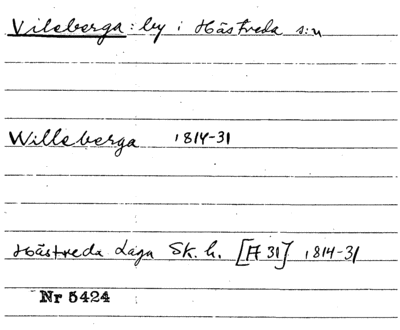 Vileberga: by i Hästveda s:n
Willeberga 1814-31
Hästveda Laga Sk. h. [A 31] 1814-31
Nr 5424